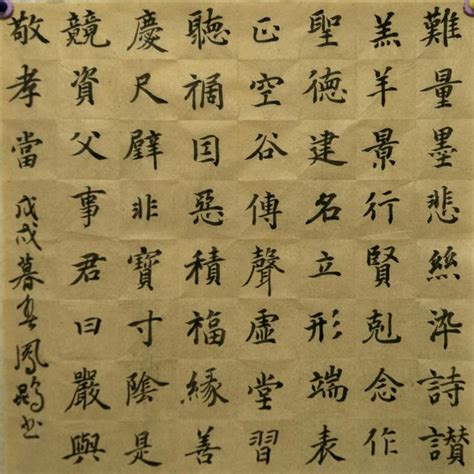 難量墨悲絲染詩讃
羔羊景行賢剋念作
聖德建名立形端表
正空谷傳聲虛堂習
聽禍因惡積福緣善
慶尺璧非寶寸陰是
競資父事君曰嚴與
敬孝當
戊戌暮春鳳书